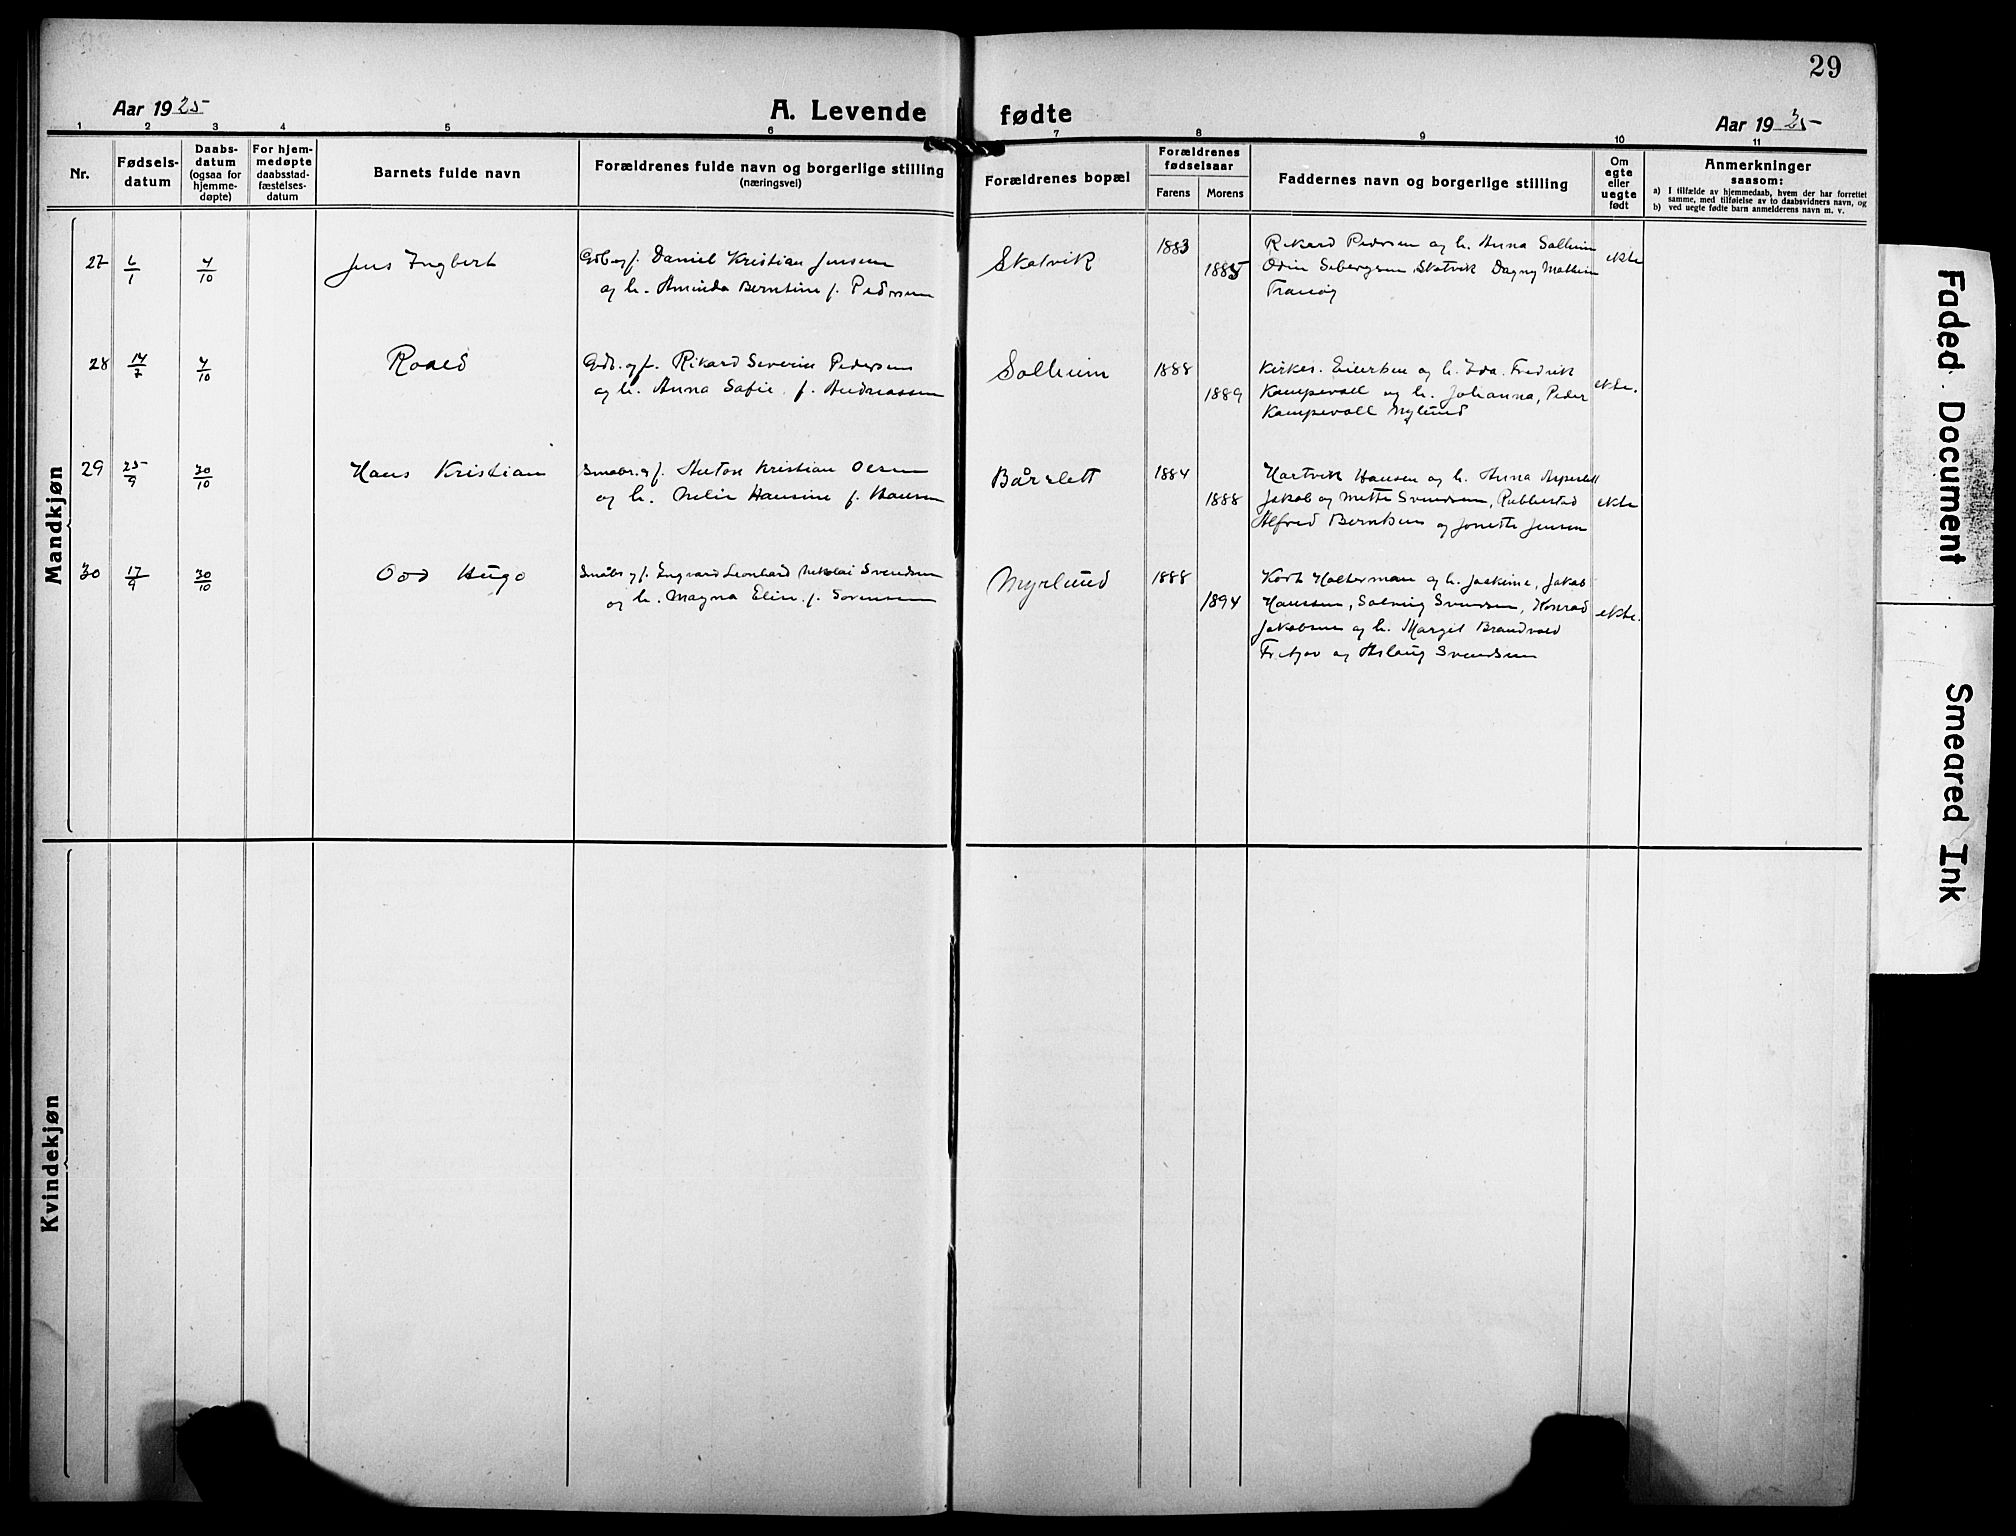 29
Aar 1925
A. Levende fødte
Aar 1925
1 2 3 4 5 6 7 8 9 10 11
Nr.
Fødselsdatum
Daabsdatum (ogsaa for hjemmedøpte)
For hjemmedøpte daabsstadfæstelsesdatum
Barnets fulde navn
Forældrenes fulde navn og borgerlige stilling
(næringsvei)
Forældrenes bopæl
Forældrenes fødselsaar
Farens Morens
Faddernes navn og borgerlige stilling
Om egte eller uegte født
Anmerkninger
saasom:
a) I tilfælde av hjemmedaab, hvem der har forrettet
samme, med tilføielse av to daabsvidners navn, og
b) ved uegte fødte barn anmelderens navn m. v.
Mandkjøn
27 6/1 4/10 Jens Ingbert
Gdb og f. Daniel Kristian Jensen
og h. Aminda Berntine f. Pedersen
Skatvik
1883
1885
Rikard Pedersen og h. Anna Solheim
Odin Sebergsen Skatvik Dagny
Tranøy
ekte
28 14/7 4/10 Roald
Gdb. og f. Rikard Severin Pedersen
og h. Anna Sofie f. Andreassen
Solheim
1888
1889
Kirkes. Eilertsen og h. Ida. Fredrik
Kampevoll og h. Johanna, Peder
Kampevoll Myrlund
ekte.
29 25/9 30/10 Hans Kristian
Småbr. og f. Anton Kristian Olsen
og h. Nelie Hansine f. Hansen
Bårslett
1884
1888
Hartvik Hansen og h. Anna
Jakob og Mette Svendsen, Rubbestad
Alfred Berntsen og Jonette Jensen
ekte
30 17/9 30/10 Odd Hugo
Småbr og f. Ingvard Leonhard Nikolai Svendsen
og h. Magna Elise f. Sørensen
Myrlund
1888
1894
Kort Holterman og h. Jaskine, Jakob
Hanssen, Solveig Svendsen, Konrad
Jakobsen og h. Margit Brandvold
Fritjov og Aslaug Svendsen
ekte.
Kvindekjøn
Faded Document
Smeared Ink